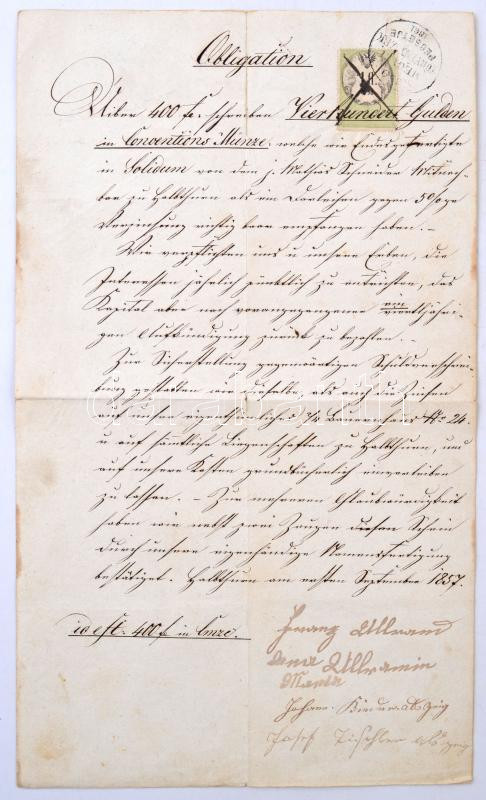 Obligation
Uiber 400 f. schreiben Vierhundert Gulden
in Conventions Münze, welche wir Endesgefertigte
in Solidum von dem J. Mathias Schneider
zu Halbthurn als ein Darleihen gegen 5%ge
Verzinsung richtig baar empfangen haben.
Wir verpflichten uns u unsere Erben, die
Interessen jährlich pünktlich zu entrichten, das
Kapital aber nach vorangegangener vierteljähri-
gen Aufkündigung zurück zu bezahlen.
Zur Sicherstellung gegenwärtigen Schuldverschrei-
bung gestatten wir dieselbe, als auch die Zinsen
auf unser eigenthümliches Bauernhaus No 24.
u auf sämtliche Liegenschaften zu Halbthurn, und
auf unsere Kosten grundbücherlich einverleiben
zu lassen. – Zur mehreren Glaubwürdigkeit
haben wir nebst zwei Zeugen diesen Schein
durch unsere eigenhändige Namensfertigung
bestätiget. Halbthurn am ersten September 1857.
id est: 400 f in Cmze.
Franz Ullram
Ullramin
Maria
Johann als Zeig
Josef Tischler als Zeig